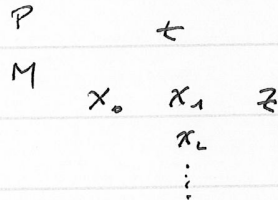 P
t
M
x₀ x₁ z
x₂
⋮